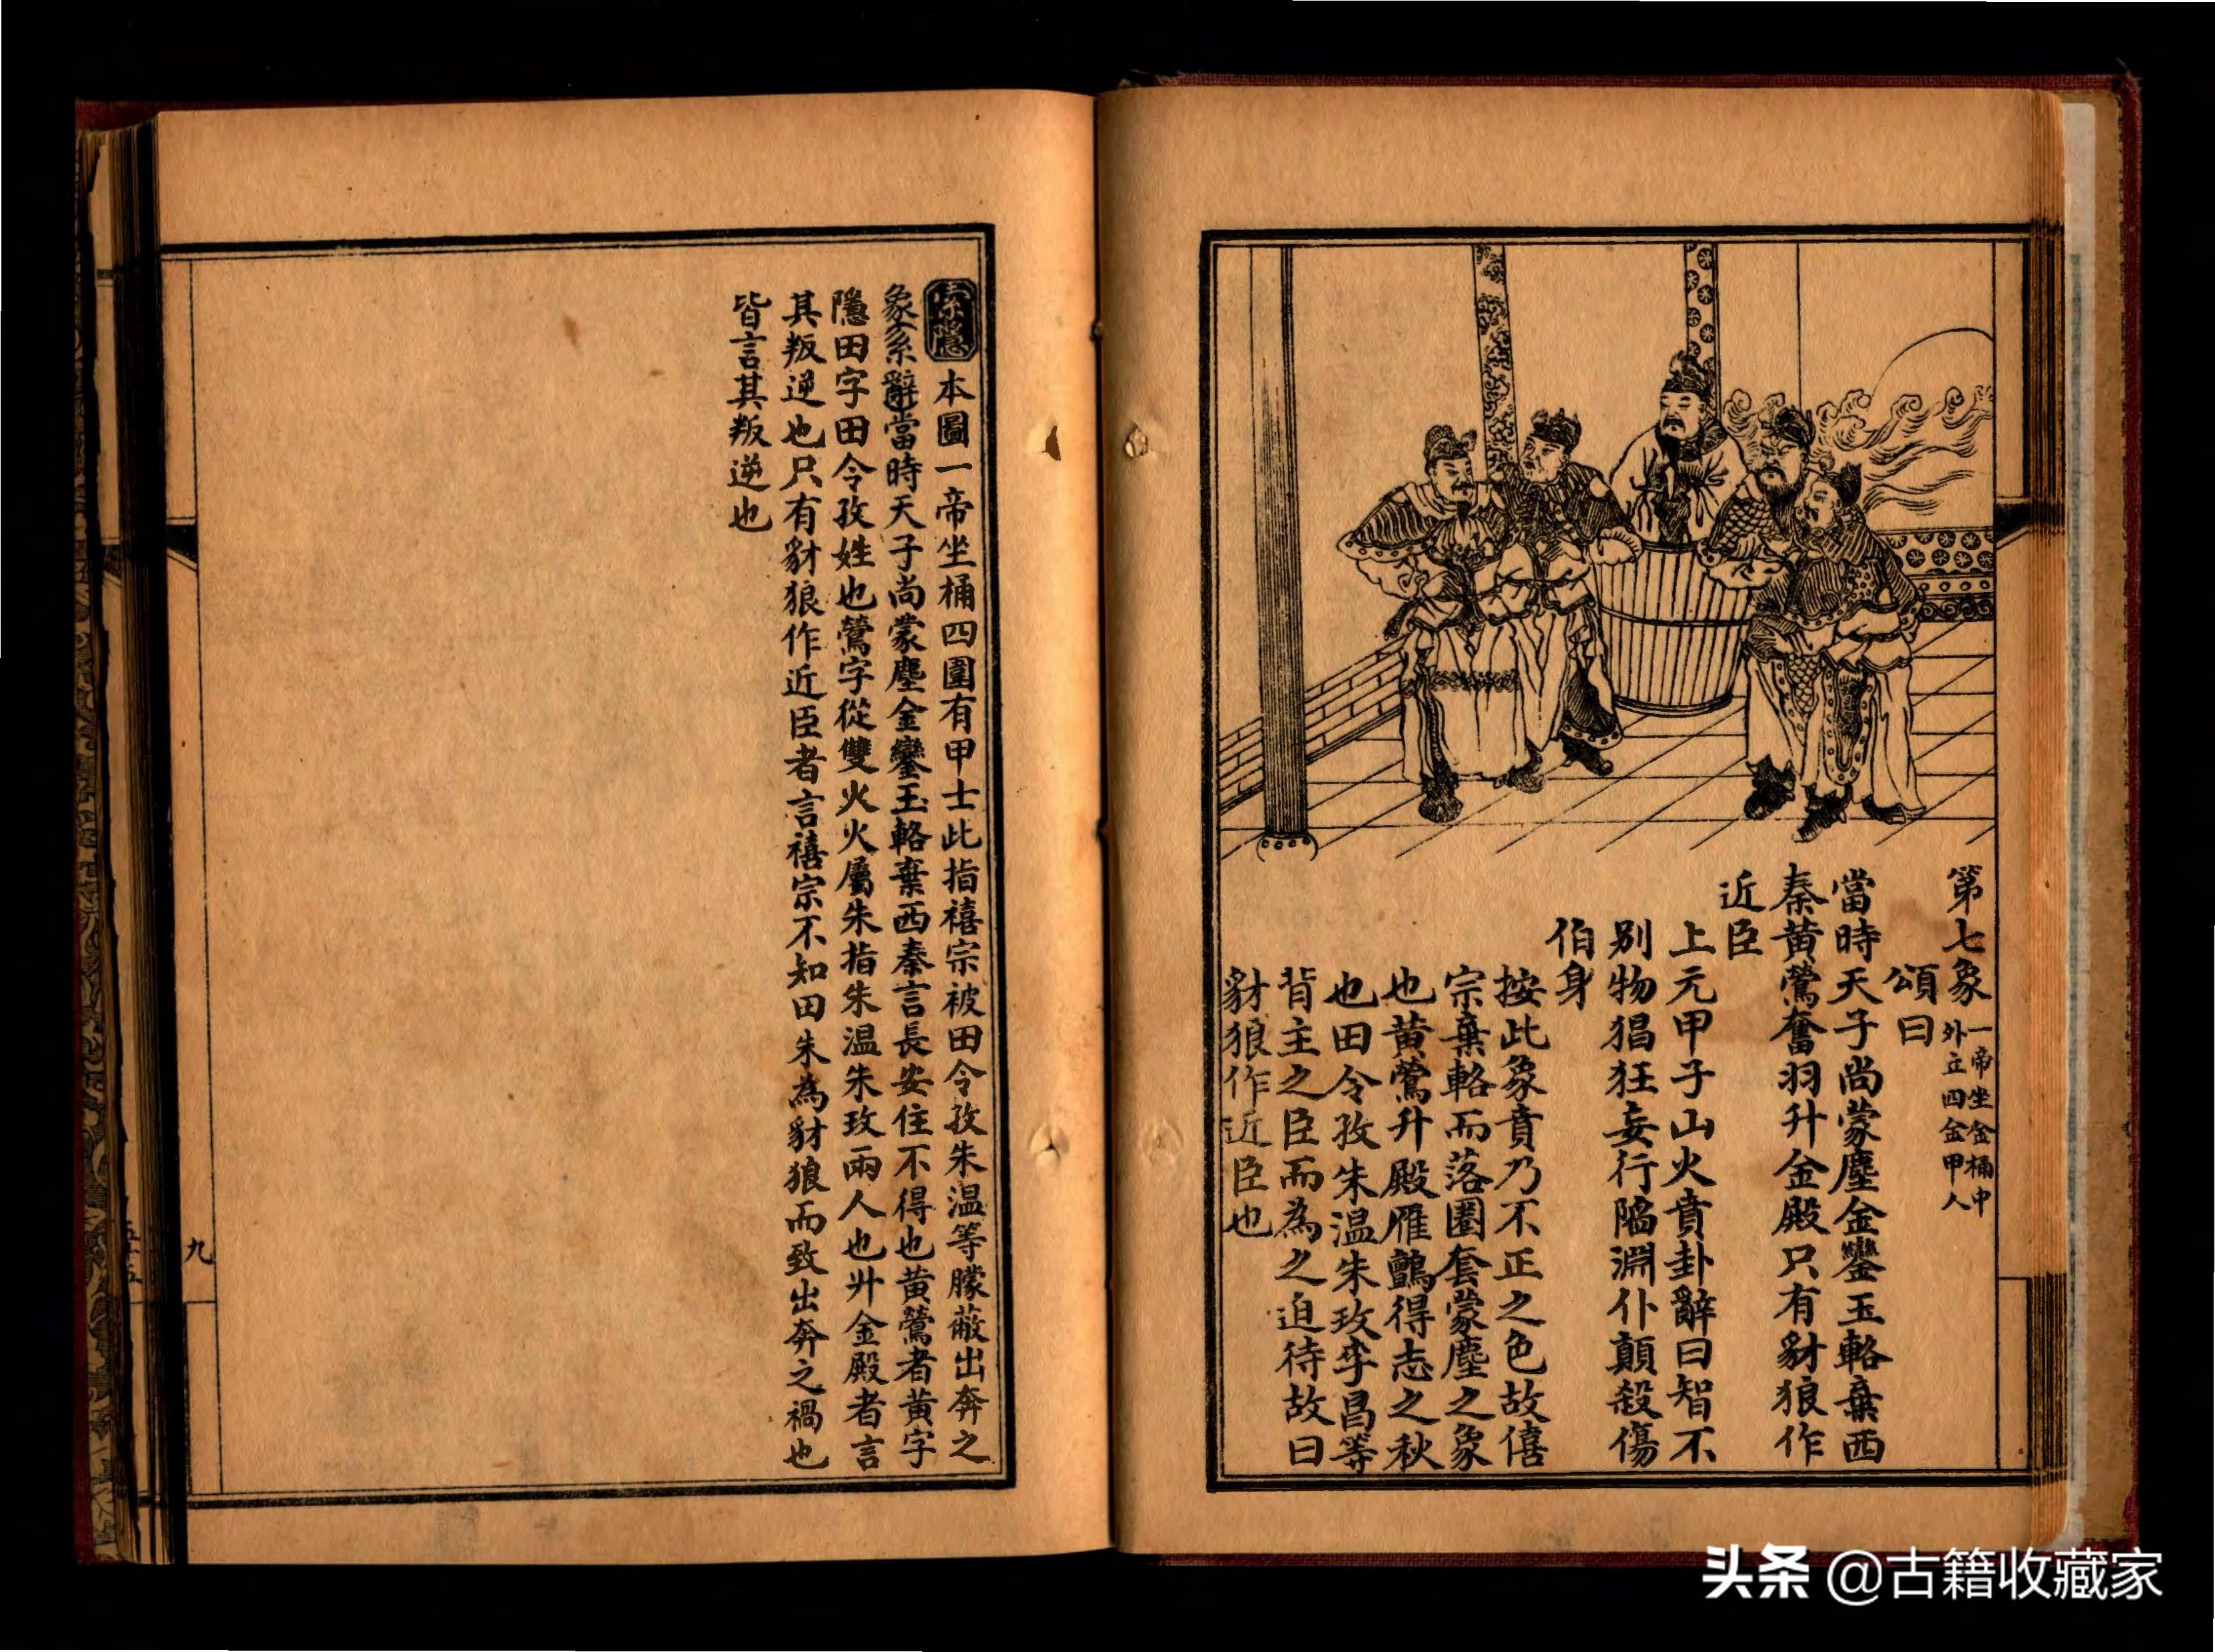 第七象
一帝坐金桶中
外立四金甲人
頌曰
當時天子尚蒙塵金鑾玉輅棄西
秦黃鶯奮羽升金殿只有豺狼作
近臣
上元甲子山火賁卦辭曰智不
別物猖狂妄行陷淵仆顛殺傷
伯身
按此象賁乃不正之色故僖
宗棄輅而落圈套蒙塵之象
也黃鶯升殿雁鸇得志之秋
也田令孜朱温朱玫李昌等
背主之臣而為之迫待故曰
豺狼作近臣也
索隱
本圖一帝坐桶四圍有甲士此指禧宗被田令孜朱温等朦蔽出奔之
象系辭當時天子尚蒙塵金鑾玉輅棄西秦言長安住不得也黃鶯者黃字
隱田字田令孜姓也鶯字從雙火火屬朱指朱温朱玫兩人也升金殿者言
其叛逆也只有豺狼作近臣者言禧宗不知田朱為豺狼而致出奔之禍也
皆言其叛逆也
九
头条 @古籍收藏家